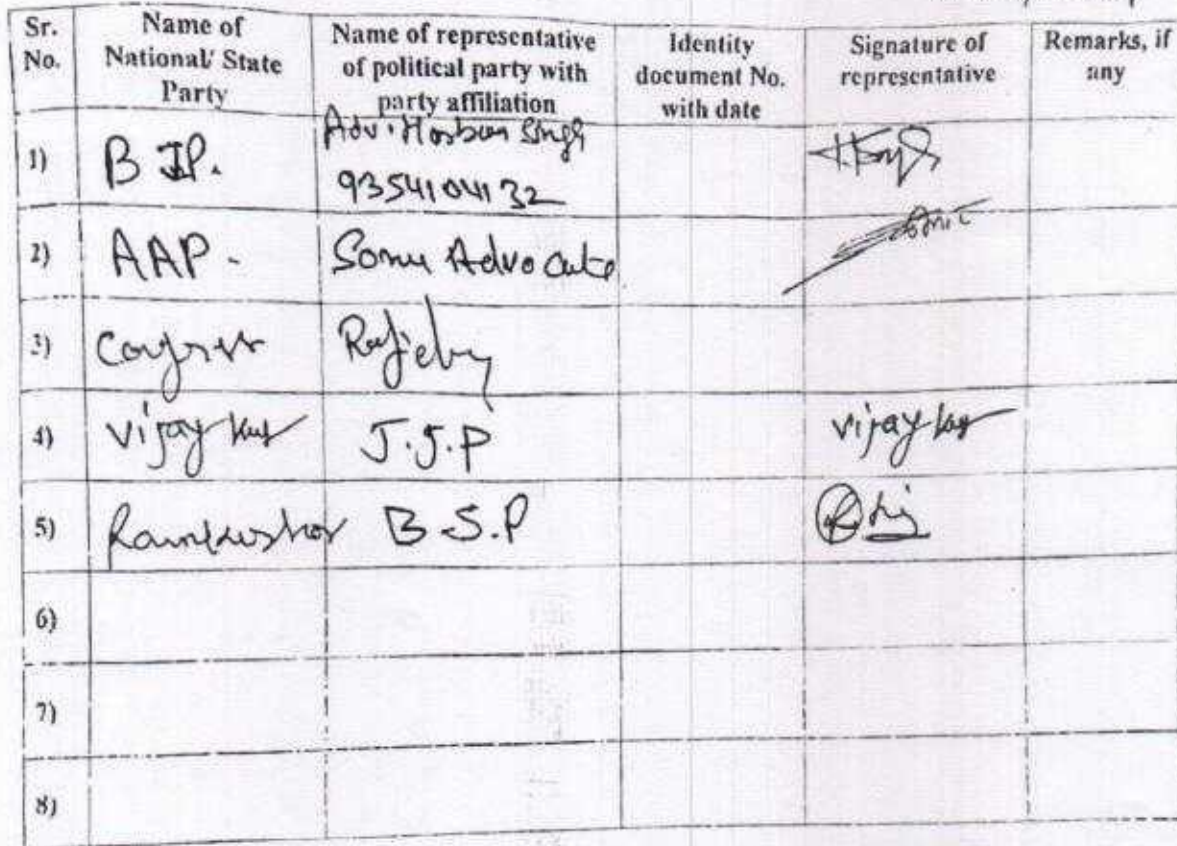 Sr. No.
Name of National/ State Party
Name of representative of political party with party affiliation
Identity document No. with date
Signature of representative
Remarks, if any
1) BJP. Adv. Singh
9354104132
2) AAP. Sonu Advocate
3)
4) Vijay J.J.P vijay
5) B.S.P
6)
7)
8)